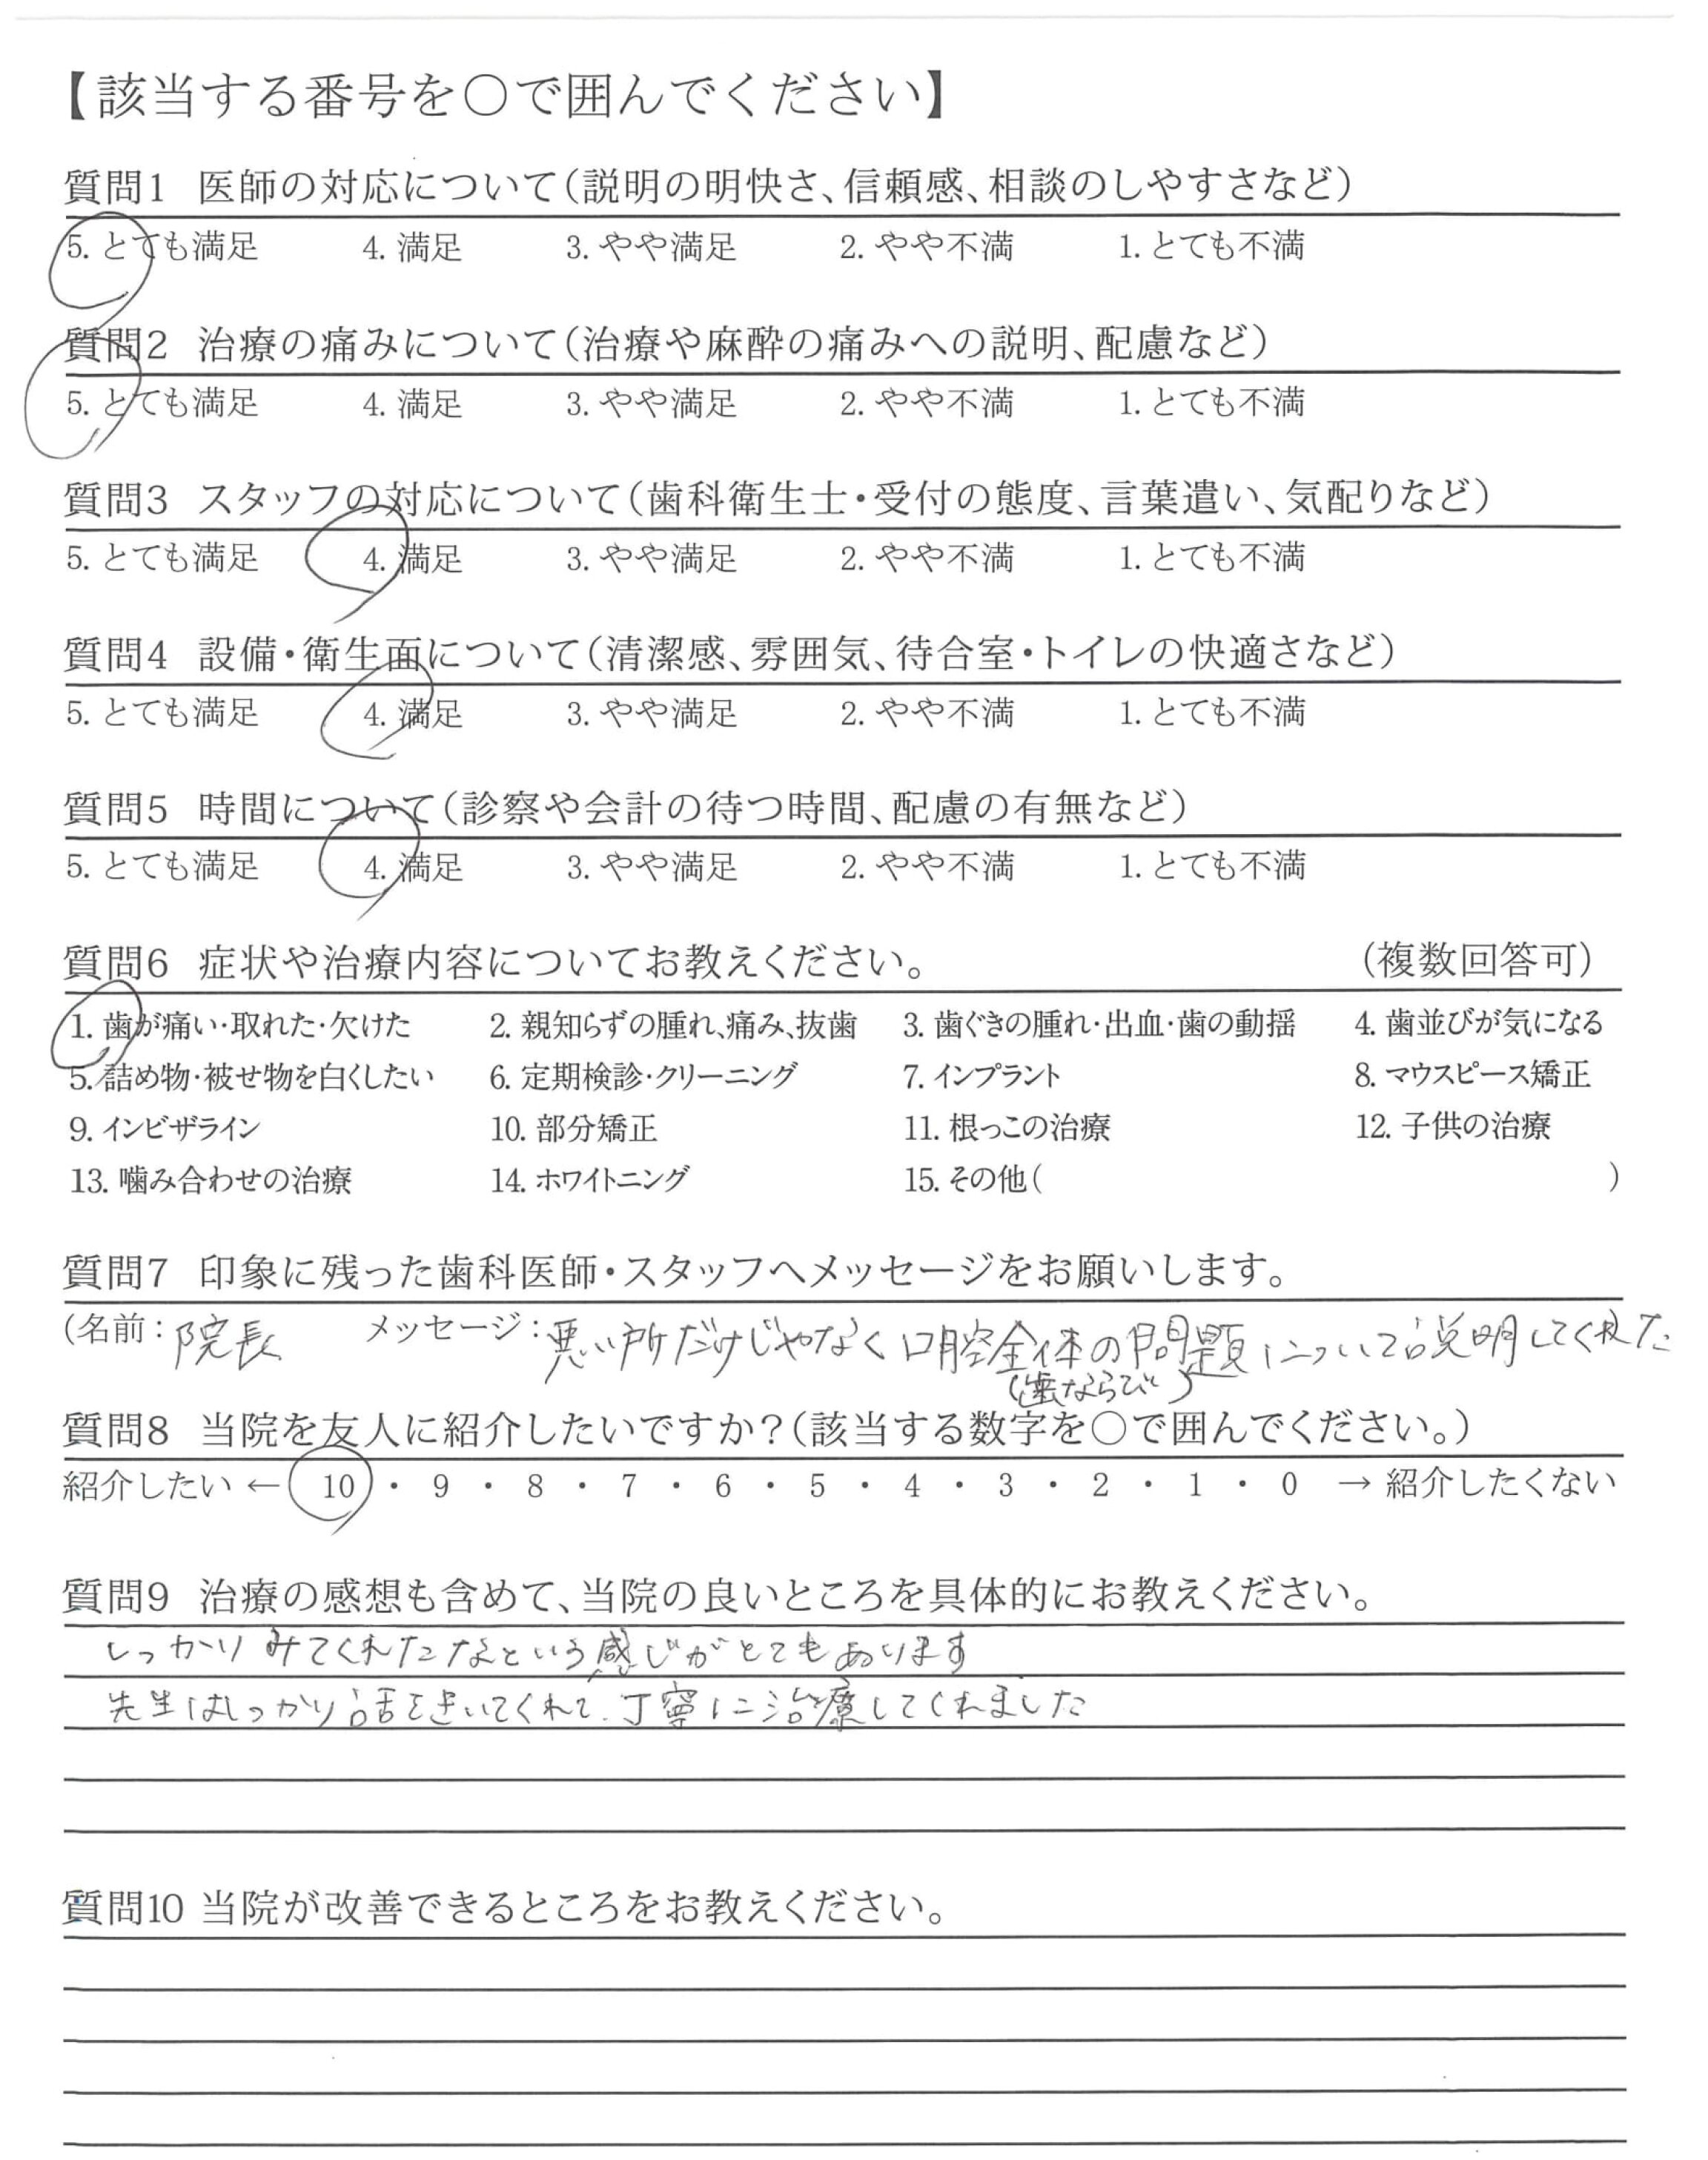 【該当する番号を○で囲んでください】
質問1 医師の対応について(説明の明快さ、信頼感、相談のしやすさなど)
5. とても満足 4. 満足 3. やや満足 2. やや不満 1. とても不満
質問2 治療の痛みについて(治療や麻酔の痛みへの説明、配慮など)
5. とても満足 4. 満足 3. やや満足 2. やや不満 1. とても不満
質問3 スタッフの対応について(歯科衛生士・受付の態度、言葉遣い、気配りなど)
5. とても満足 4. 満足 3. やや満足 2. やや不満 1. とても不満
質問4 設備・衛生面について(清潔感、雰囲気、待合室・トイレの快適さなど)
5. とても満足 4. 満足 3. やや満足 2. やや不満 1. とても不満
質問5 時間について(診察や会計の待つ時間、配慮の有無など)
5. とても満足 4. 満足 3. やや満足 2. やや不満 1. とても不満
質問6 症状や治療内容についてお教えください。 (複数回答可)
1. 歯が痛い・取れた・欠けた 2. 親知らずの腫れ、痛み、抜歯 3. 歯ぐきの腫れ・出血・歯の動揺 4. 歯並びが気になる
5. 詰め物・被せ物を白くしたい 6. 定期検診・クリーニング 7. インプラント 8. マウスピース矯正
9. インビザライン 10. 部分矯正 11. 根っこの治療 12. 子供の治療
13. 噛み合わせの治療 14. ホワイトニング 15. その他( )
質問7 印象に残った歯科医師・スタッフへメッセージをお願いします。
(名前:院長 メッセージ:悪い所だけじゃなく口腔全体の問題について説明してくれた
(歯ならび)
質問8 当院を友人に紹介したいですか?(該当する数字を○で囲んでください。)
紹介したい ← 10 ・ 9 ・ 8 ・ 7 ・ 6 ・ 5 ・ 4 ・ 3 ・ 2 ・ 1 ・ 0 → 紹介したくない
質問9 治療の感想も含めて、当院の良いところを具体的にお教えください。
しっかりみてくれたなという感じがとてもあります
先生はしっかり話をきいてくれて、丁寧に治療してくれました
質問10 当院が改善できるところをお教えください。